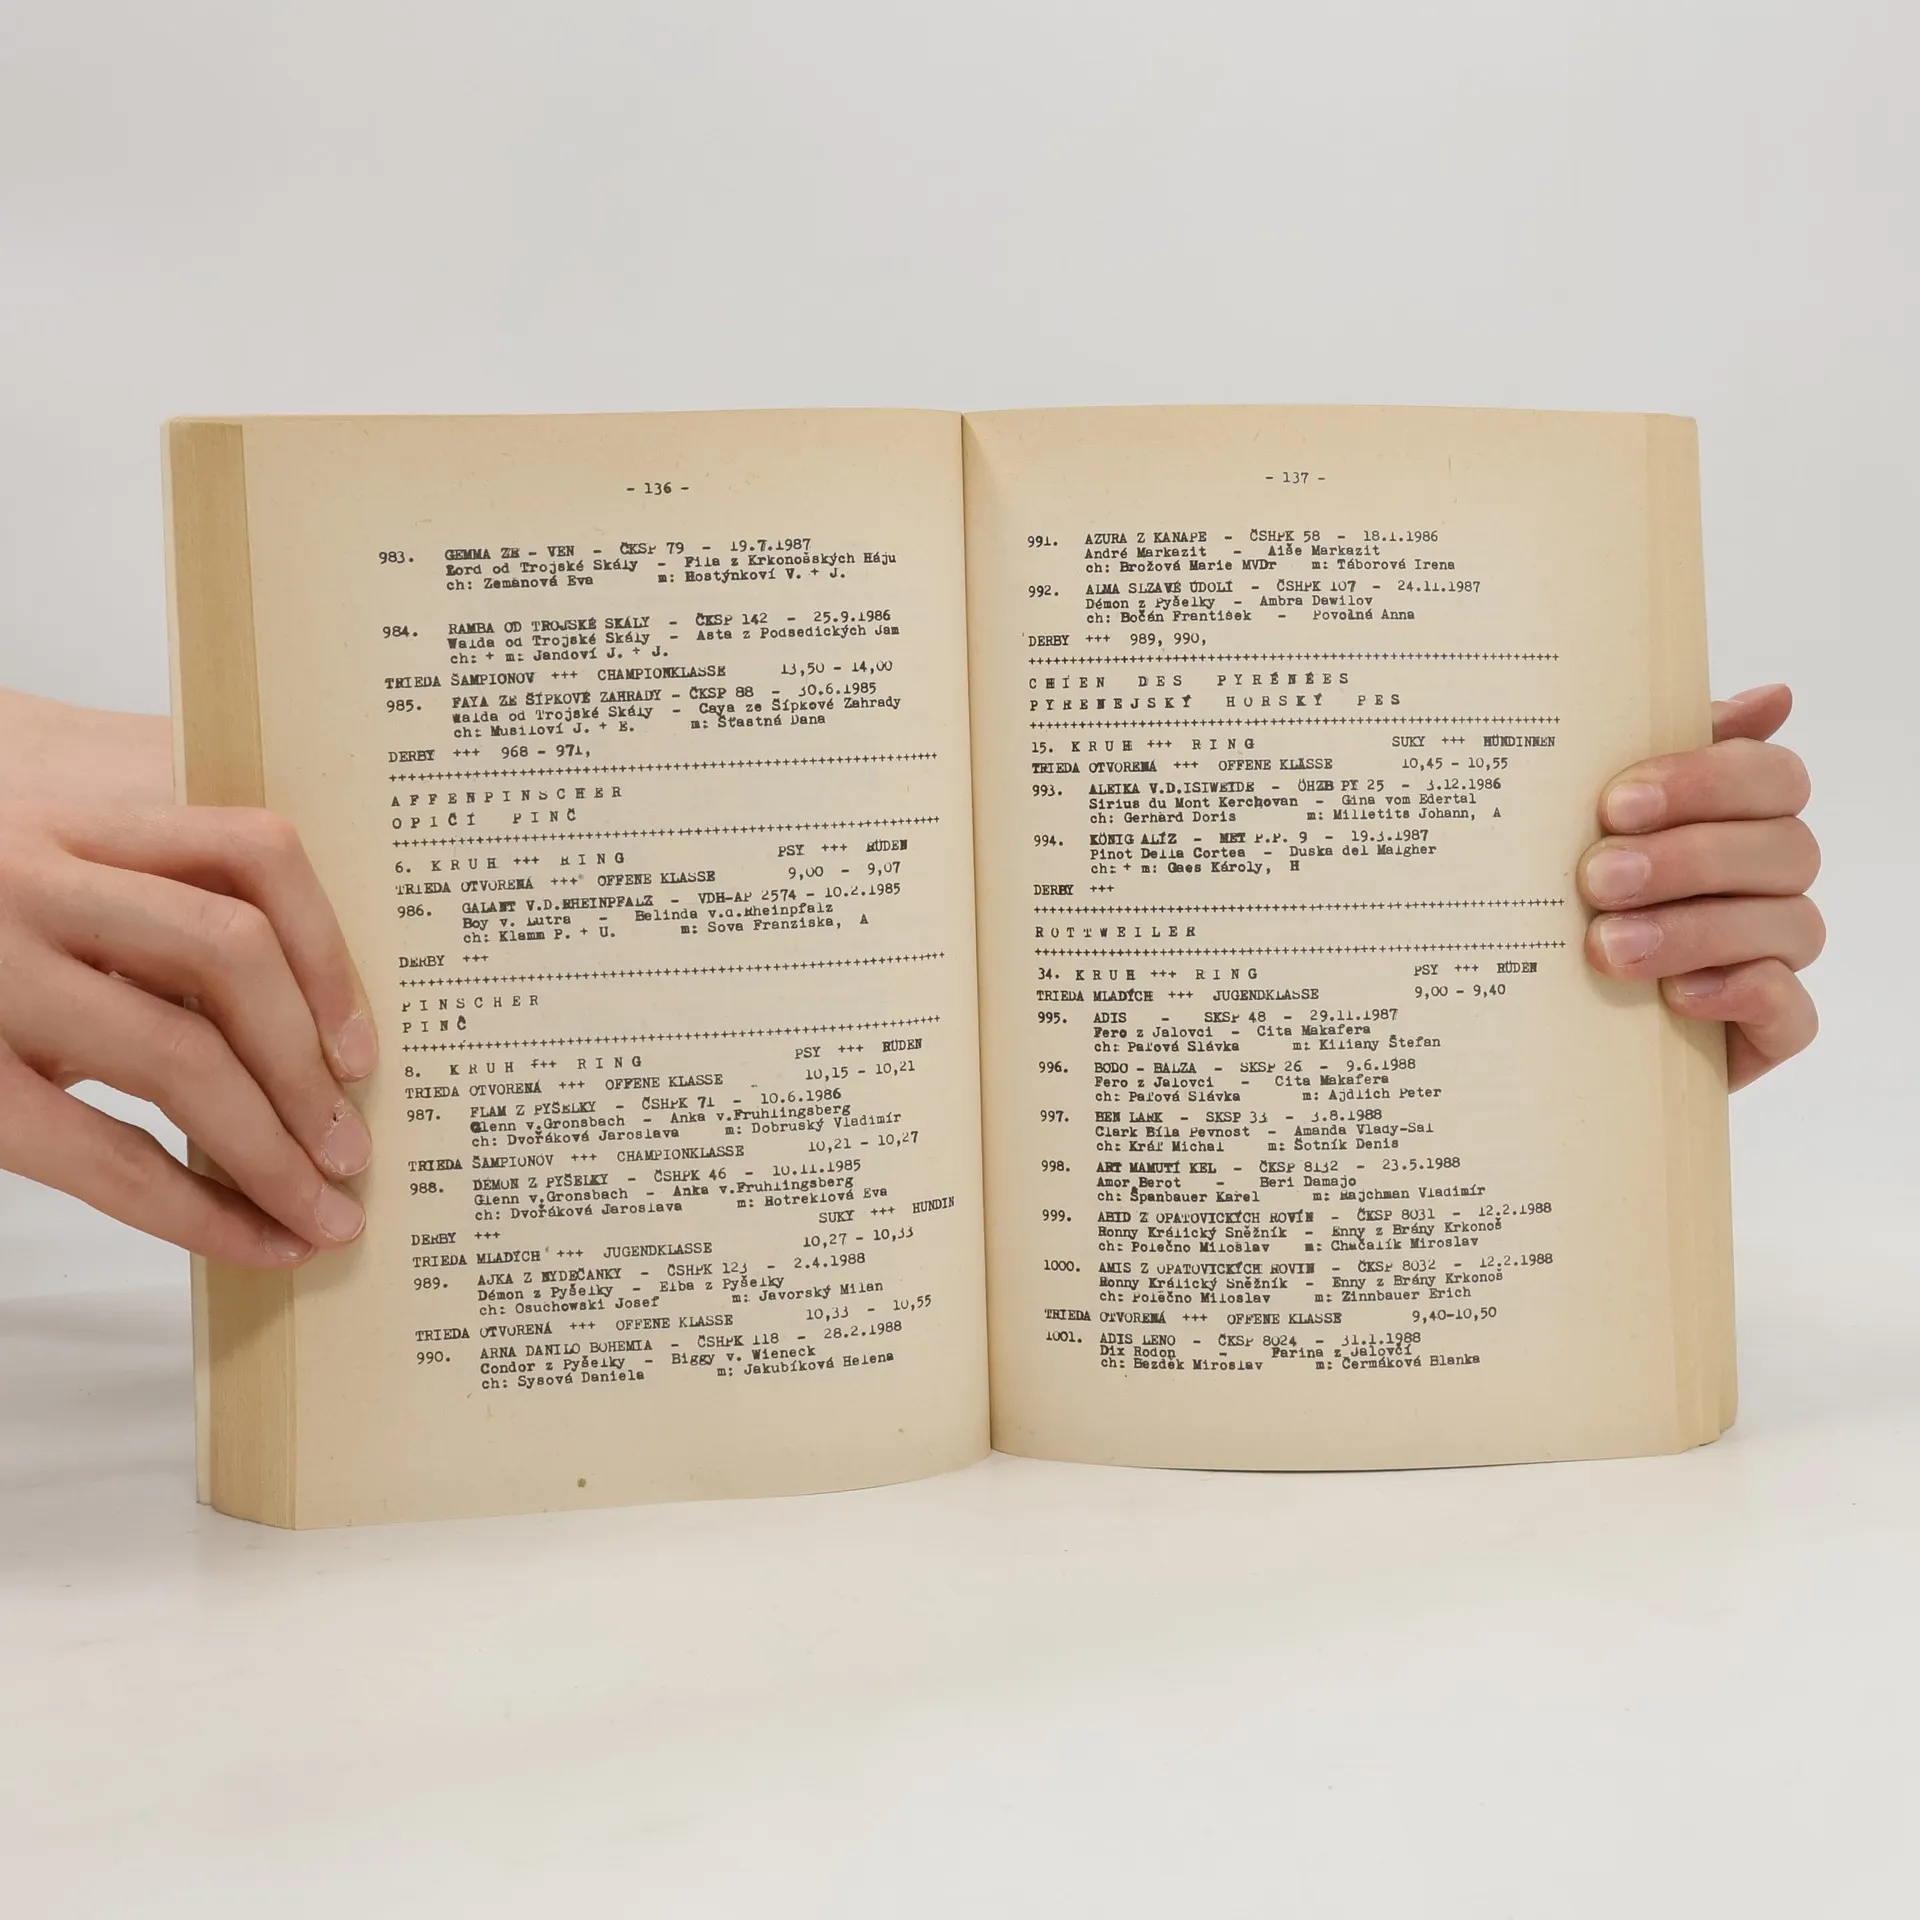 - 136 -
983. GEMMA ZE - VEN - ČKSP 79 - 19.7.1987
Lord od Trojské Skály - Fila z Krkonošských Háju
ch: Zemanová Eva m: Hostýnkoví V. + J.
984. RAMBA OD TROJSKÉ SKÁLY - ČKSP 142 - 25.9.1986
Walda od Trojské Skály - Asta z Podsedických Jam
ch: + m: Jandoví J. + J.
TRIEDA ŠAMPIONOV +++ CHAMPIONKLASSE 13,50 - 14,00
985. FAYA ZE ŠÍPKOVÉ ZAHRADY - ČKSP 88 - 30.6.1985
Walda od Trojské Skály - Caya ze Šípkové Zahrady
ch: Musiloví J. + E. m: Šťastná Dana
DERBY +++ 968 - 971,
++++++++++++++++++++++++++++++++++++++++++++++++++++++++++++++++
A F F E N P I N S C H E R
O P I Č Í P I N Č
++++++++++++++++++++++++++++++++++++++++++++++++++++++++++++++++
6. K R U H +++ R I N G PSY +++ RÜDEN
TRIEDA OTVORENÁ +++ OFFENE KLASSE 9,00 - 9,07
986. GALANT V.D.RHEINPFALZ - VDH-AP 2574 - 10.2.1985
Boy v. Lutra - Belinda v.d.Rheinpfalz
ch: Klamm P. + U. m: Sova Franziska, A
DERBY +++
++++++++++++++++++++++++++++++++++++++++++++++++++++++++++++++++
P I N S C H E R
P I N Č
++++++++++++++++++++++++++++++++++++++++++++++++++++++++++++++++
8. K R U H +++ R I N G PSY +++ RÜDEN
TRIEDA OTVORENÁ +++ OFFENE KLASSE 10,15 - 10,21
987. FLAM Z PYŠELKY - ČSHPK 71 - 10.6.1986
Glenn v.Gronsbach - Anka v.Fruhlingsberg
ch: Dvořáková Jaroslava m: Dobruský Vladimír
TRIEDA ŠAMPIONOV +++ CHAMPIONKLASSE 10,21 - 10,27
988. DÉMON Z PYŠELKY - ČSHPK 46 - 10.11.1985
Glenn v.Gronsbach - Anka v.Fruhlingsberg
ch: Dvořáková Jaroslava m: Hotreklová Eva
DERBY +++ SUKY +++ HUNDIN
TRIEDA MLADÝCH +++ JUGENDKLASSE 10,27 - 10,33
989. AJKA Z NYDEČANKY - ČSHPK 123 - 2.4.1988
Démon z Pyšelky - Elba z Pyšelky
ch: Osuchowski Josef m: Javorský Milan
TRIEDA OTVORENÁ +++ OFFENE KLASSE 10,33 - 10,55
990. ARNA DANILO BOHEMIA - ČSHPK 118 - 28.2.1988
Condor z Pyšelky - Biggy v. Wieneck
ch: Sysová Daniela m: Jakubíková Helena
- 137 -
991. AZURA Z KANAPE - ČSHPK 58 - 18.1.1986
André Markazit - Aiše Markazit
ch: Brožová Marie MVDr m: Táborová Irena
992. ALMA SLZAVÉ ÚDOLÍ - ČSHPK 107 - 24.11.1987
Démon z Pyšelky - Ambra Dawilov
ch: Bočán František - Povolná Anna
DERBY +++ 989, 990,
++++++++++++++++++++++++++++++++++++++++++++++++++++++++++++++++
C H I E N D E S P Y R É N É E S
P Y R E N E J S K Ý H O R S K Ý P E S
++++++++++++++++++++++++++++++++++++++++++++++++++++++++++++++++
15. K R U H +++ R I N G SUKY +++ HÜNDINNEN
TRIEDA OTVORENÁ +++ OFFENE KLASSE 10,45 - 10,55
993. ALEIKA V.D.ISIWEIDE - ÖHZB PY 25 - 3.12.1986
Sirius du Mont Kerchovan - Gina vom Edertal
ch: Gerhard Doris m: Milletits Johann, A
994. KÖNIG ALÍZ - MET P.P. 9 - 19.3.1987
Pinot Della Cortea - Duska del Malgher
ch: + m: Gaes Károly, H
DERBY +++
++++++++++++++++++++++++++++++++++++++++++++++++++++++++++++++++
R O T T W E I L E R
++++++++++++++++++++++++++++++++++++++++++++++++++++++++++++++++
34. K R U H +++ R I N G PSY +++ RÜDEN
TRIEDA MLADÝCH +++ JUGENDKLASSE 9,00 - 9,40
995. ADIS - SKSP 48 - 29.11.1987
Fero z Jalovci - Cita Makafera
ch: Paľová Slávka m: Kiliany Štefan
996. BODO - BALZA - SKSP 26 - 9.6.1988
Fero z Jalovci - Cita Makafera
ch: Paľová Slávka m: Ajdlich Peter
997. BEN LARK - SKSP 33 - 3.8.1988
Clark Bíla Pevnost - Amanda Vlady-Sal
ch: Kráľ Michal m: Šotník Denis
998. ART MAMUTÍ KEL - ČKSP 8132 - 23.5.1988
Amor Berot - Beri Damajo
ch: Španbauer Karel m: Rajchman Vladimír
999. ABID Z OPATOVICKÝCH ROVÍN - ČKSP 8031 - 12.2.1988
Ronny Králický Sněžník - Enny z Brány Krkonoš
ch: Polečno Miloslav m: Chučalík Miroslav
1000. AMIS Z OPATOVICKÝCH ROVIN - ČKSP 8032 - 12.2.1988
Ronny Králický Sněžník - Enny z Brány Krkonoš
ch: Polečno Miloslav m: Zinnbauer Erich
TRIEDA OTVORENÁ +++ OFFENE KLASSE 9,40-10,50
1001. ADIS LENO - ČKSP 8024 - 31.1.1988
Dix Rodon - Farina z Jalovčí
ch: Bezděk Miroslav m: Čermáková Blanka